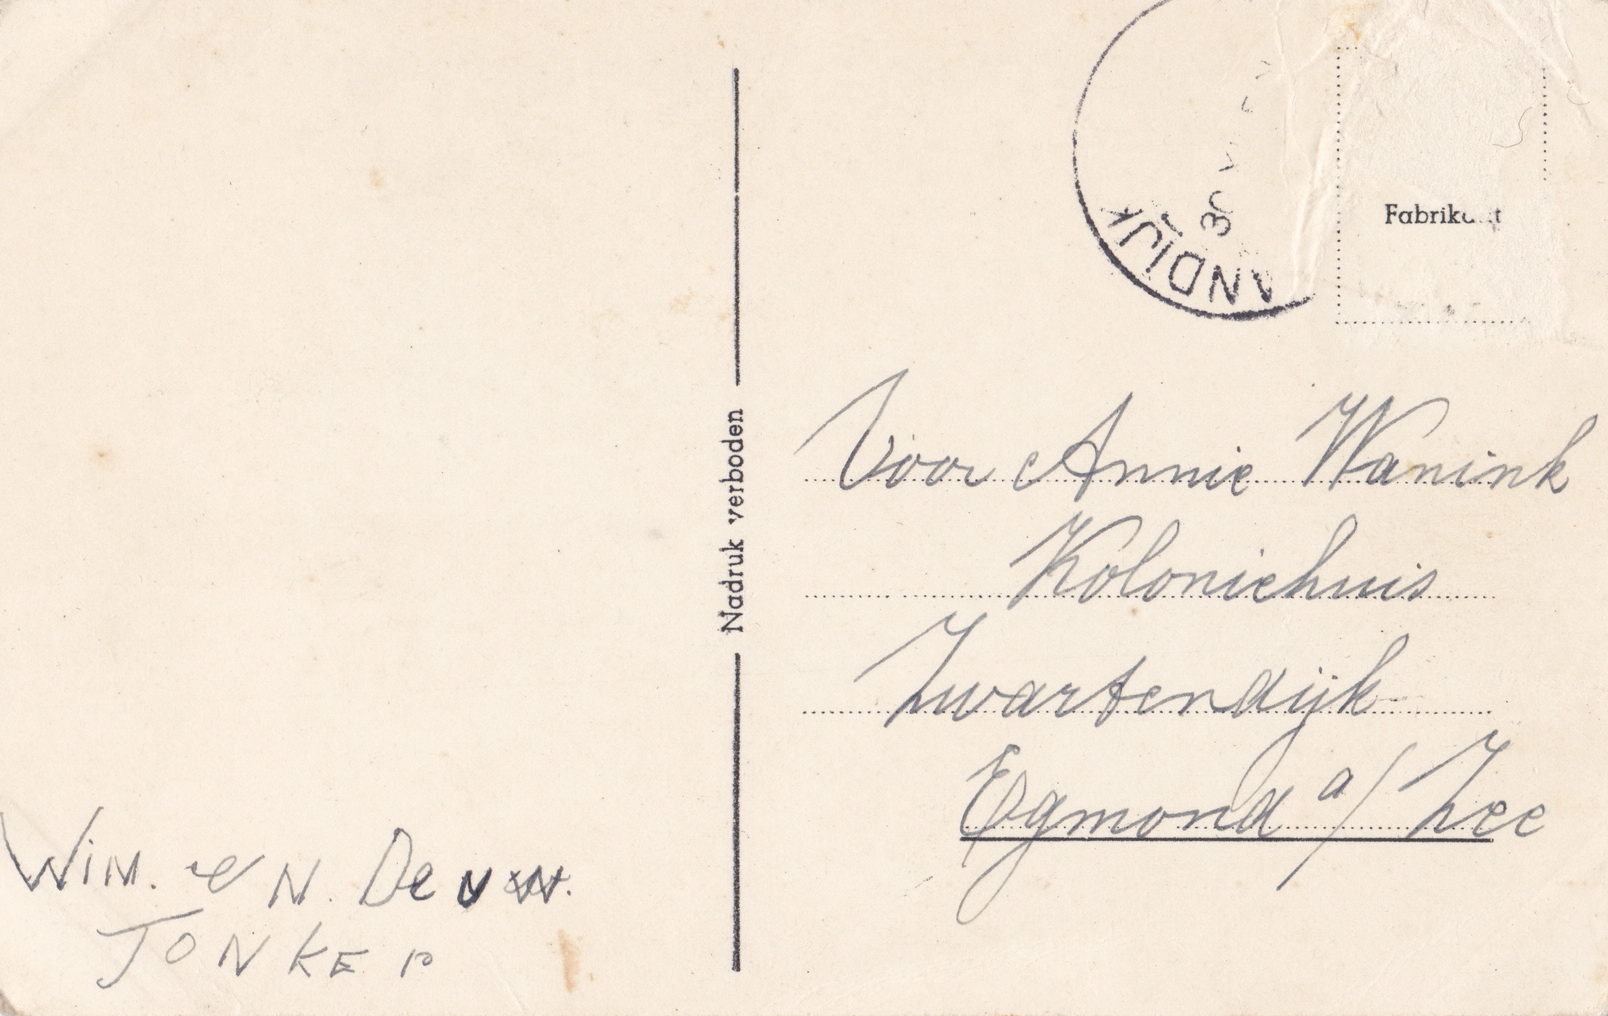 ANDIJK
30 V
Fabrikant
Nadruk verboden
Voor Annie Wanink
Koloniehuis
Zwartendijk
Egmond a/Zee
WiM. en N. De uw.
JONKER